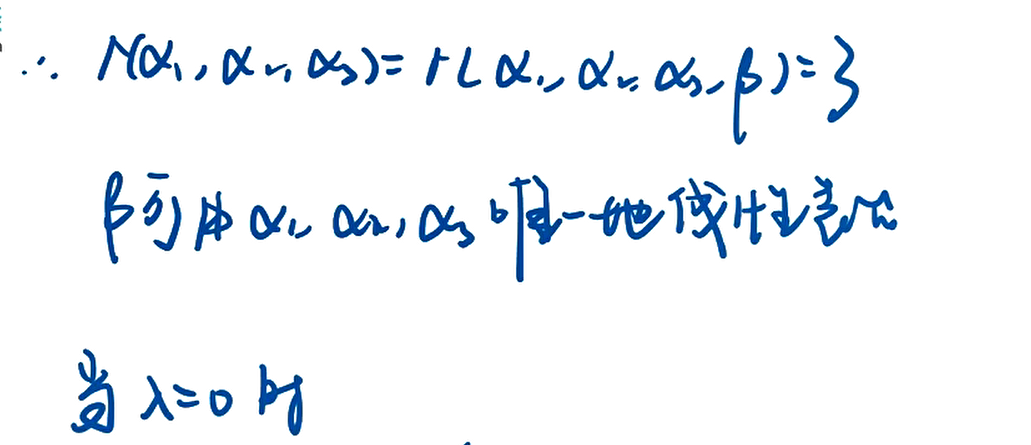 ∴ r(α₁, α₂, α₃) = r(α₁, α₂, α₃, β) = 3
β可由 α₁, α₂, α₃ 唯一地线性表示
当 λ=0 时